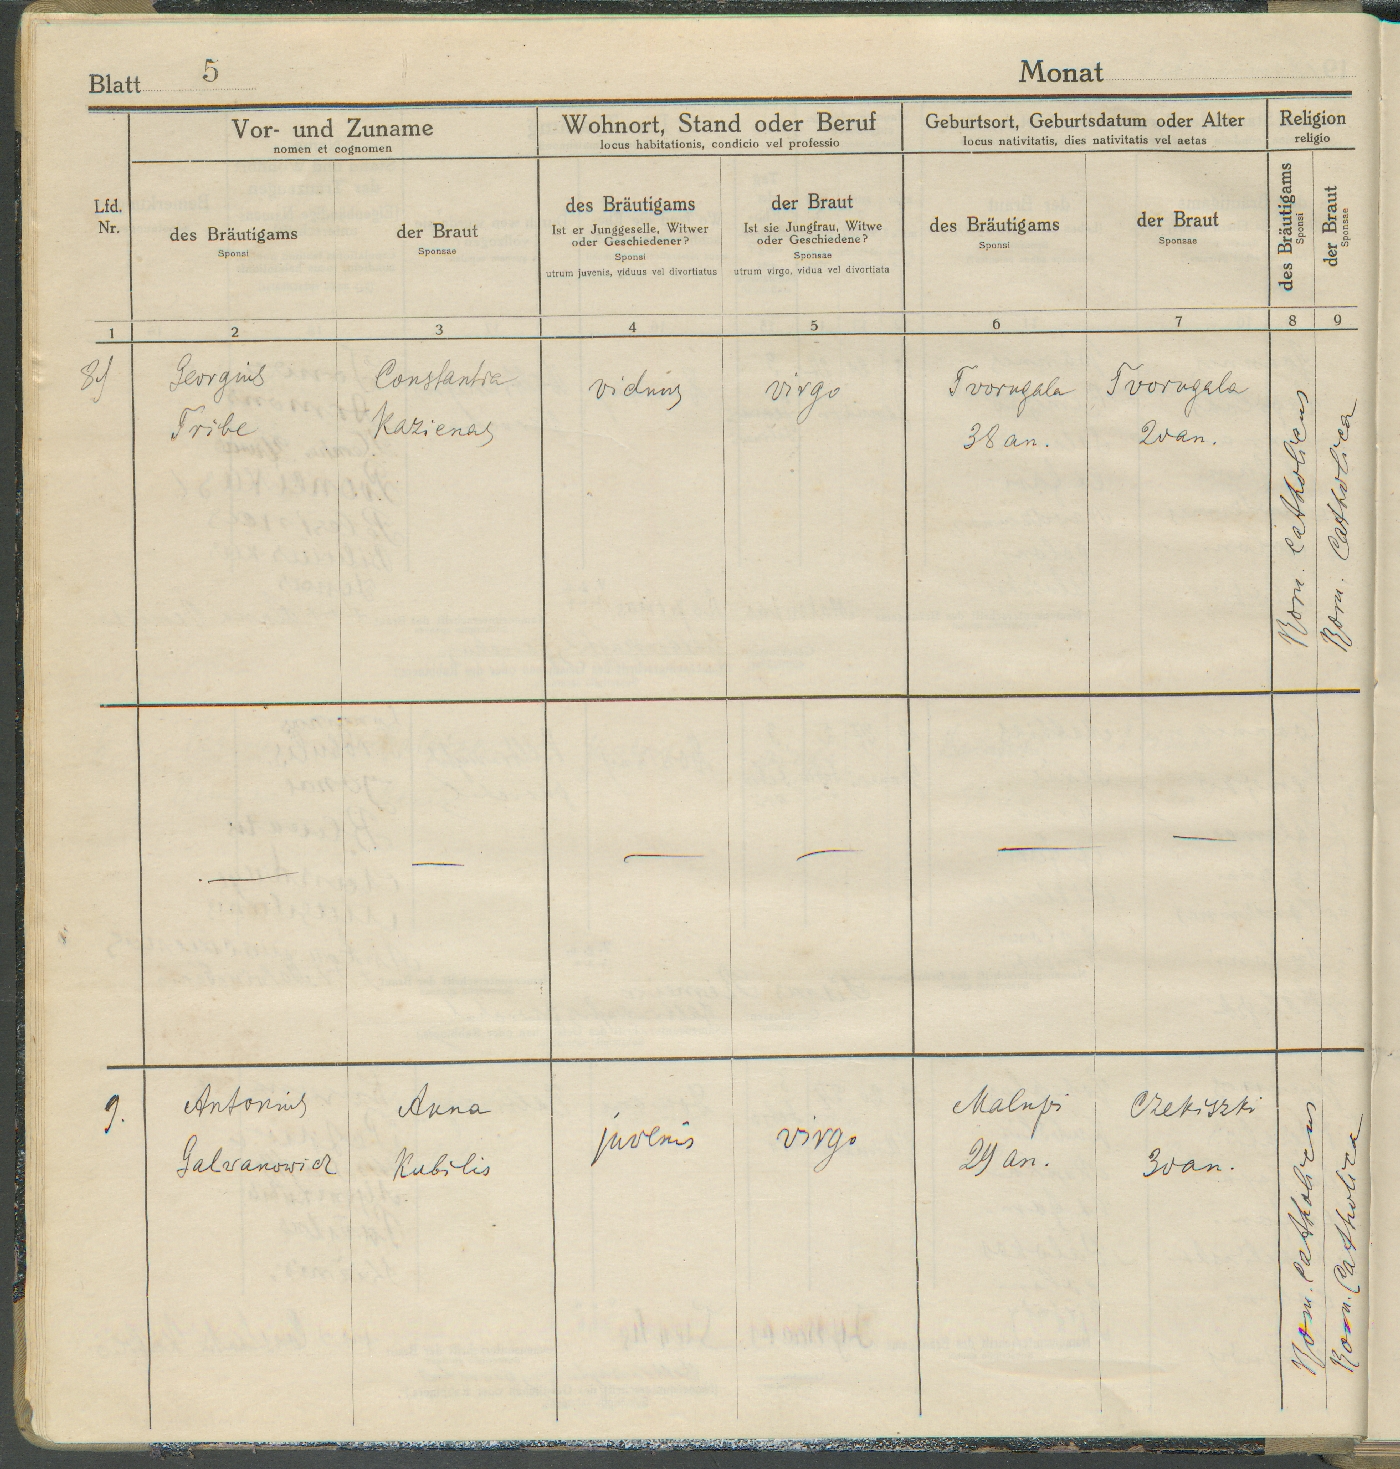 Blatt 5
Monat
Lfd. Nr.
Vor- und Zuname
nomen et cognomen
des Bräutigams
Sponsi
der Braut
Sponsae
Wohnort, Stand oder Beruf
locus habitationis, condicio vel professio
des Bräutigams
Ist er Junggeselle, Witwer
oder Geschiedener?
Sponsi
utrum juvenis, viduus vel divortiatus
der Braut
Ist sie Jungfrau, Witwe
oder Geschiedene?
Sponsae
utrum virgo, vidua vel divortiata
Geburtsort, Geburtsdatum oder Alter
locus nativitatis, dies nativitatis vel aetas
des Bräutigams
Sponsi
der Braut
Sponsae
Religion
religio
des Bräutigams
Sponsi
der Braut
Sponsae
1 2 3 4 5 6 7 8 9
8)
Georgius
Tribe
Constantia
Kazienas
viduus
virgo
Tvorugala
38 an.
Tvorugala
20 an.
Rom. Catholicus
Rom. Catholica
9.
Antonius
Galvanowicz
Anna
Kubilis
juvenis
virgo
Malupi
29 an.
Czekiszki
30 an.
Rom. Catholicus
Rom. Catholica